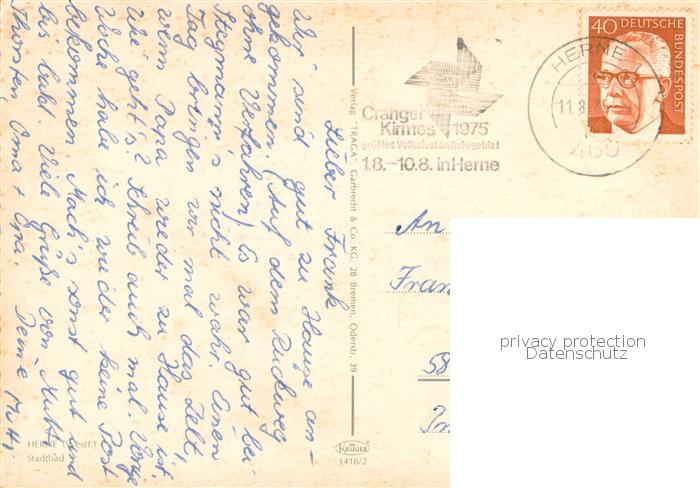 Lieber Frank
Wir sind gut zu Hause an-
gekommen. (Auf dem Rückweg
ohne Verfahren) Es war gut bei
Stegmann's nicht wahr. Einen
Tag bringen wir mal das Zelt,
wenn Papa wieder zu Hause ist.
Wie geht's? Schreib auch mal. Vorige
Woche habe ich wieder keine Post
bekommen. Mach's sonst gut und
bis bald. Viele Grüße von Mutti
Thorsten, Oma + Opa. Deine M.H.
HERNE (Westf.)
Stadtbad
Verlag "TRAGA", Garbrecht & Co. KG, 28 Bremen, Oderstr. 39
KRÜGER
1418/2
Cranger
Kirmes 1975
größtes Volksfest im Ruhrgebiet
1.8.-10.8. in Herne
HERNE
11.8
469
40 DEUTSCHE
BUNDESPOST
An
Fran
58
privacy protection
Datenschutz